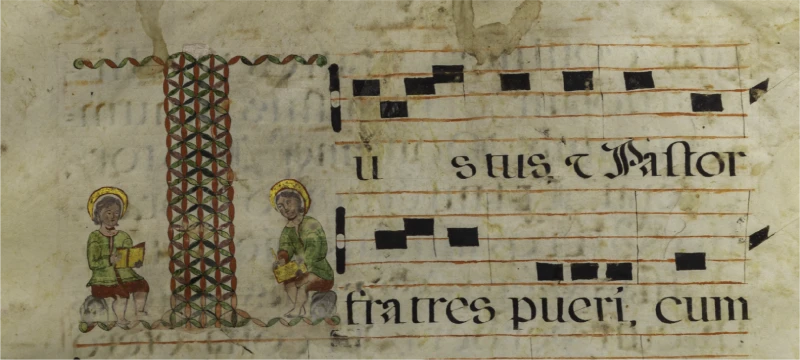 Iustus, ⁊ Paſtor
fratres pueri, cum